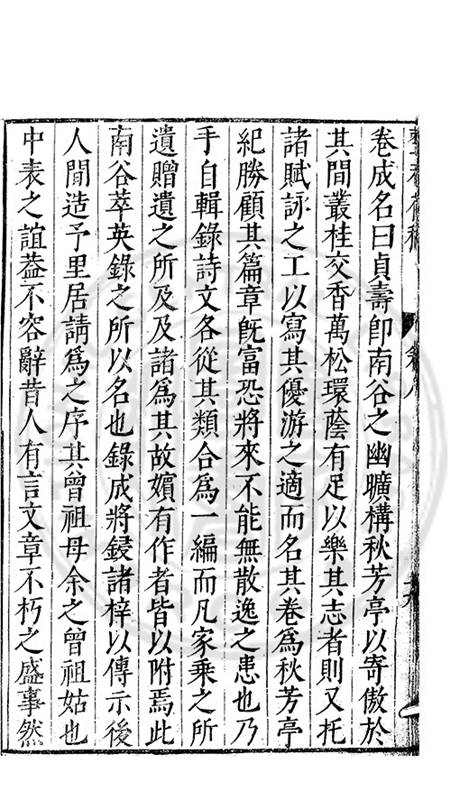 卷成名曰貞壽卽南谷之幽曠構秋芳亭以寄傲於
其間叢桂交香萬松環蔭有足以樂其志者則又托
諸賦詠之工以寫其優游之適而名其卷爲秋芳亭
紀勝顧其篇章旣富恐將來不能無散逸之患也乃
手自輯錄詩文各從其類合爲一編而凡家乘之所
遺贈遺之所及及諸爲其故嬪有作者皆以附焉此
南谷萃英錄之所以名也錄成將鋟諸梓以傳示後
人間造予里居請爲之序其曾祖母余之曾祖姑也
中表之誼葢不容辭昔人有言文章不朽之盛事然